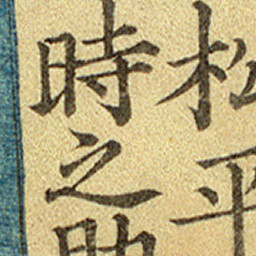 松平
時之助